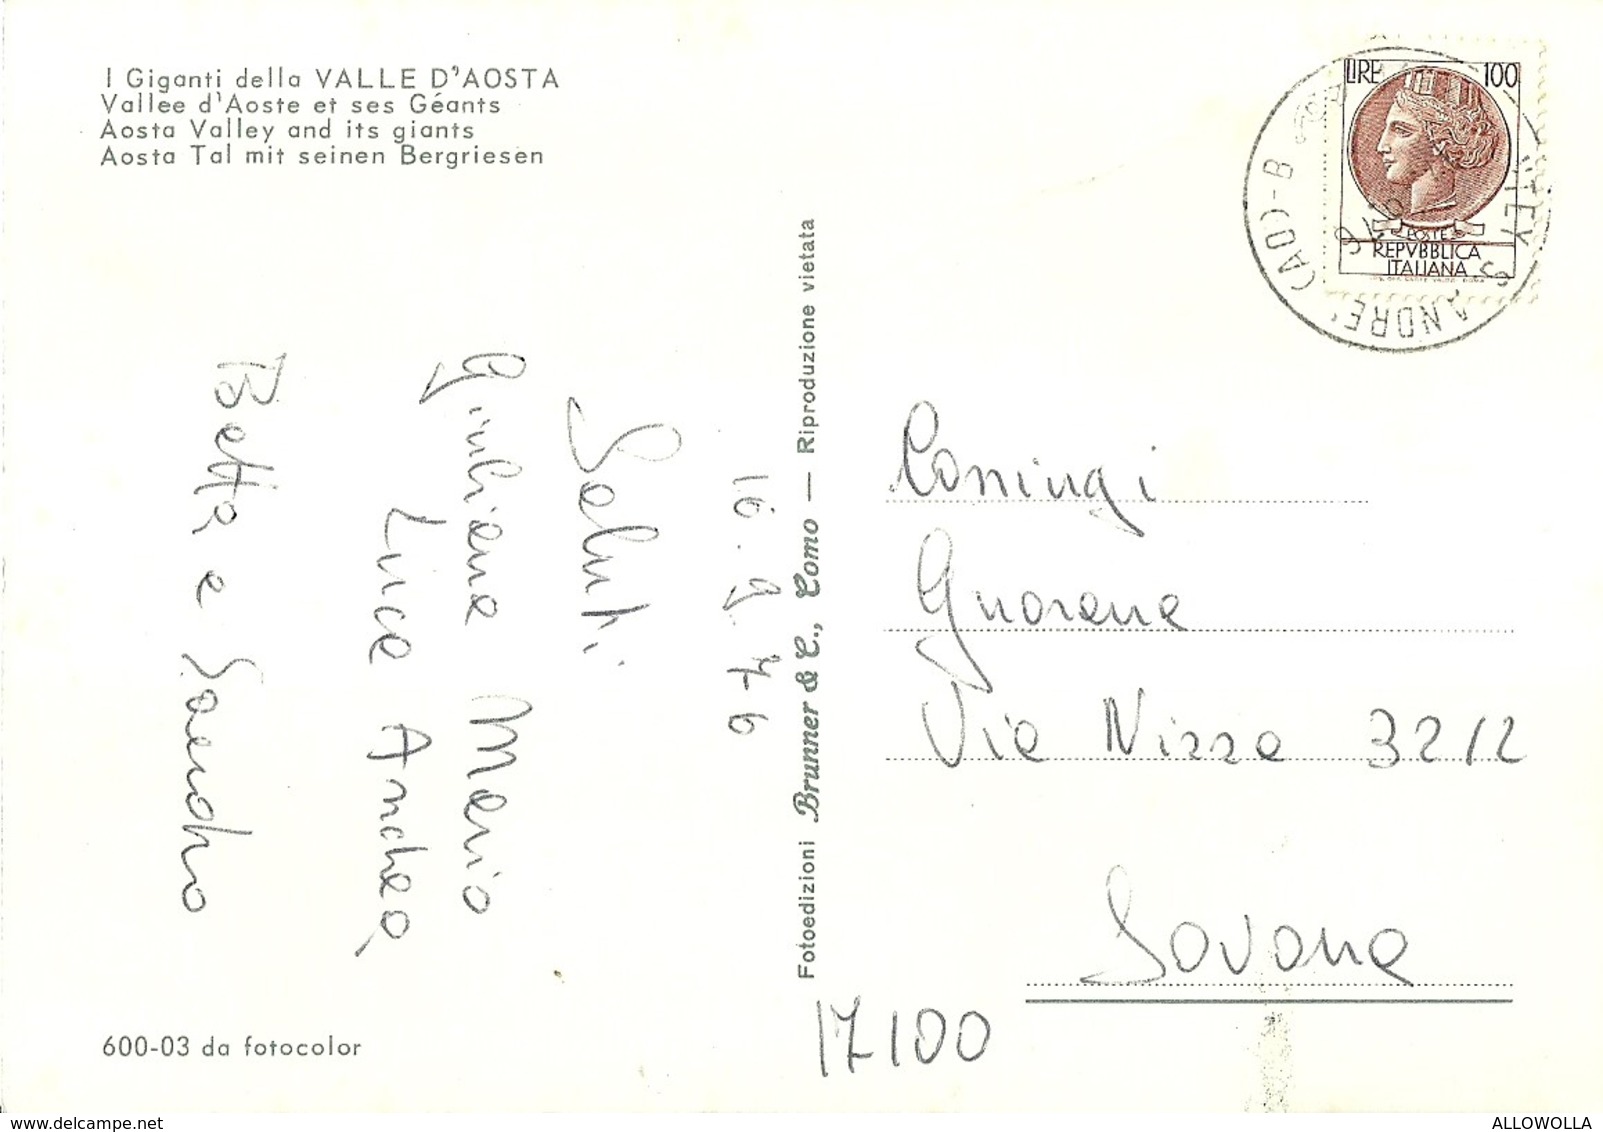 I Giganti della VALLE D'AOSTA
Vallee d'Aoste et ses Géants
Aosta Valley and its giants
Aosta Tal mit seinen Bergriesen
16.9.76
Saluti
Giuliana Mario
Luca Andrea,
Betta e Sandro
600-03 da fotocolor
Fotoedizioni Brunner & C., Como — Riproduzione vietata
LIRE 100
POSTE
REPVBBLICA
ITALIANA
ANDRE' (AO)-B
Via Nizza 32/2
Savona
17100
ALLOWOLLA